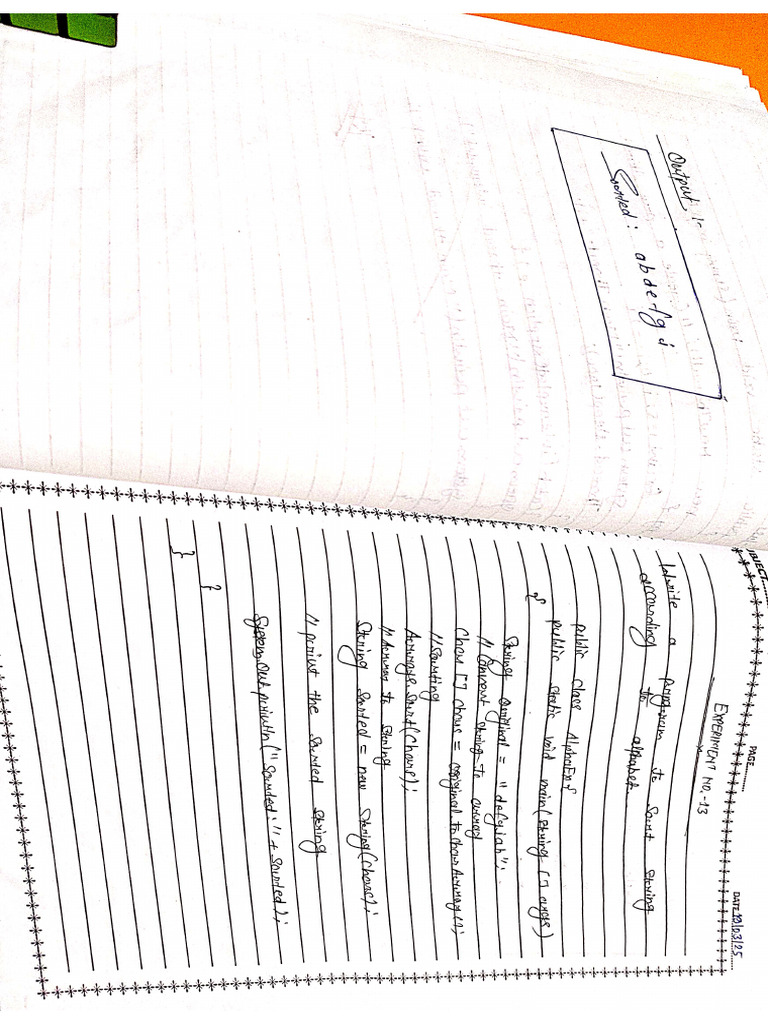 Output :-
Sorted: abdefgi
OBJECT........
PAGE........
DATE 19/03/25
EXPERIMENT NO.-13
Write a program to Sort String
according to alphabet.
public class AlphaEx {
public static void main(String [] args)
{
String original = "defgiab";
// Convert string to array
Char [] chars = original.toCharArray();
// Sorting
Arrays.sort(chars);
// Array to string
String sorted = new String(chars);
// print the sorted string
System.out.println("sorted:" + sorted);
}
}